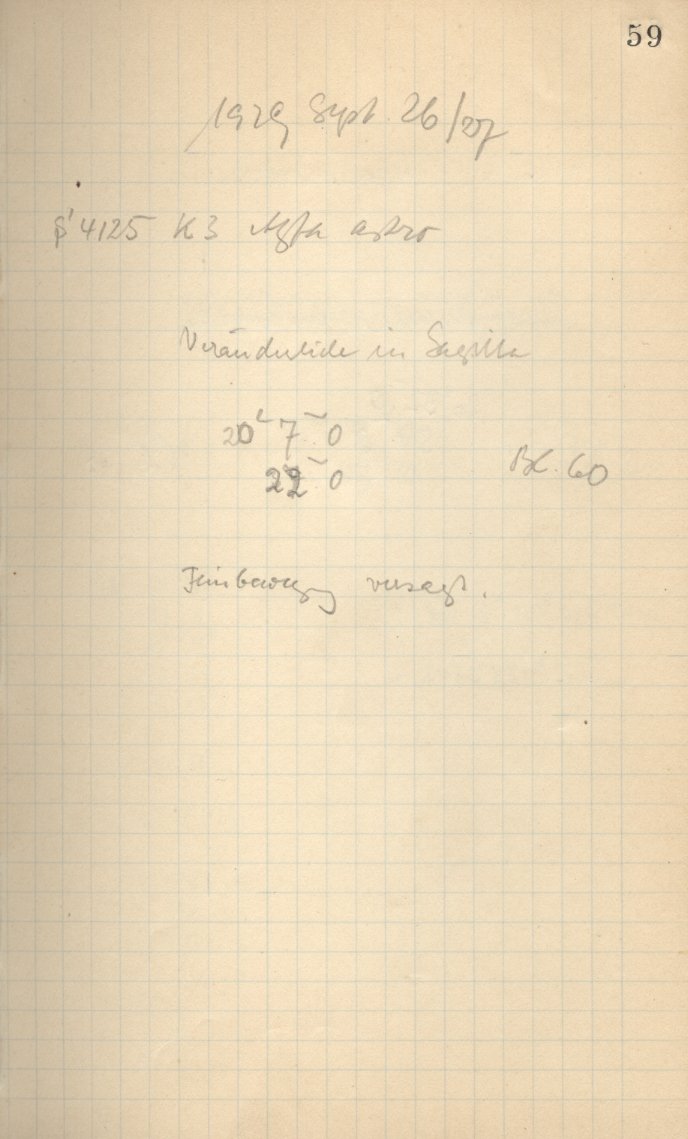 59
1929 Sept. 26/27
4125 K3 Agfa astro
Veränderliche in Sagitta
20ʰ 7ᵐ.0
22ᵐ.0
Bl. 60
Feinbewegung versagt.